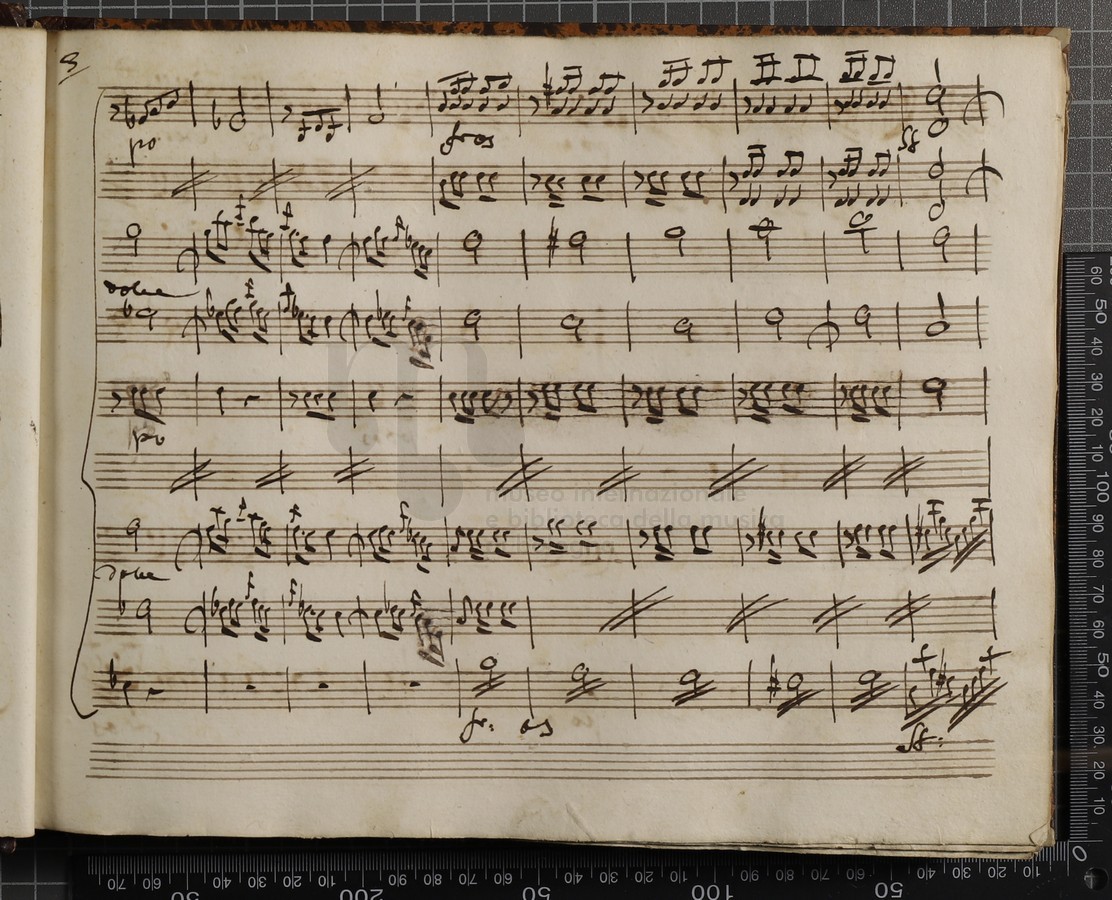 3
po
fr os
ff
dolce
po
museo internazionale
e biblioteca della musica
dolce
fr: os
ff:
60 50 40 30 20 10 100 90 80 70 60 50 40 30 20 10 0
70 60 50 40 30 20 10 200 90 80 70 60 50 40 30 20 10 100 90 80 70 60 50 40 30 20 10